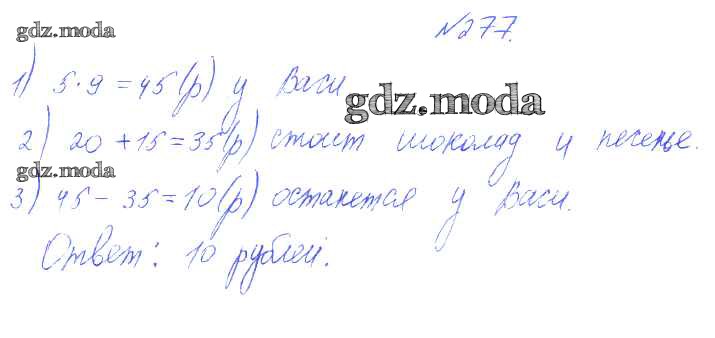 gdz.moda
№277.
1) 5·9=45(р) у Васи
gdz.moda
2) 20+15=35(р) стоит шоколад и печенье.
gdz.moda
3) 45-35=10(р) останется у Васи.
Ответ: 10 рублей.